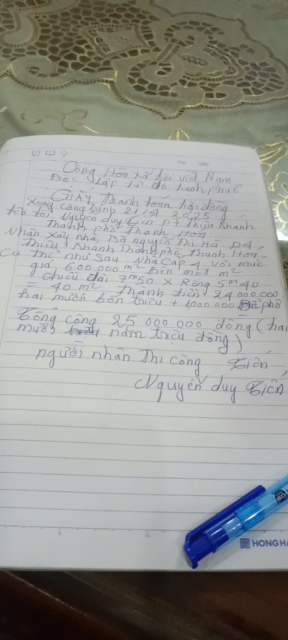 Cộng Hòa xã hội việt Nam
Độc lập tự do hạnh phúc
Giấy Thanh toán hợp đồng
xong công trình 21/5/2025
tên tôi Nguyễn duy Tiến D4 Thiệu Khanh
Thành phố Thanh Hóa
Nhận xây nhà Bà nguyễn Thị Hà D4
Thiệu Khanh Thành phố Thanh Hóa
Cụ thể như Sau Nhà Cấp 4 với mức
giá 600.000 m² Trên một m²
chiều dài 7m50 x Rộng 5m40
= 40 m² Thành tiền 24 000 000
hai mươi bốn triệu + 1000 000
Tổng cộng 25 000 000 đồng (hai
mươi năm triệu đồng)
người nhân Thi công Tiến
Nguyễn duy Tiến
HONG HA